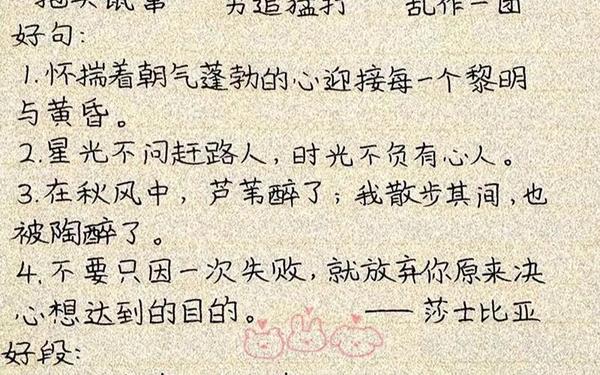 抱头鼠窜 穷追猛打 乱作一团
好句:
1.怀揣着朝气蓬勃的心迎接每一个黎明
与黄昏。
2.星光不问赶路人,时光不负有心人。
3.在秋风中,芦苇醉了;我散步其间,也
被陶醉了。
4.不要只因一次失败,就放弃你原来决
心想达到的目的。 ——莎士比亚
好段: